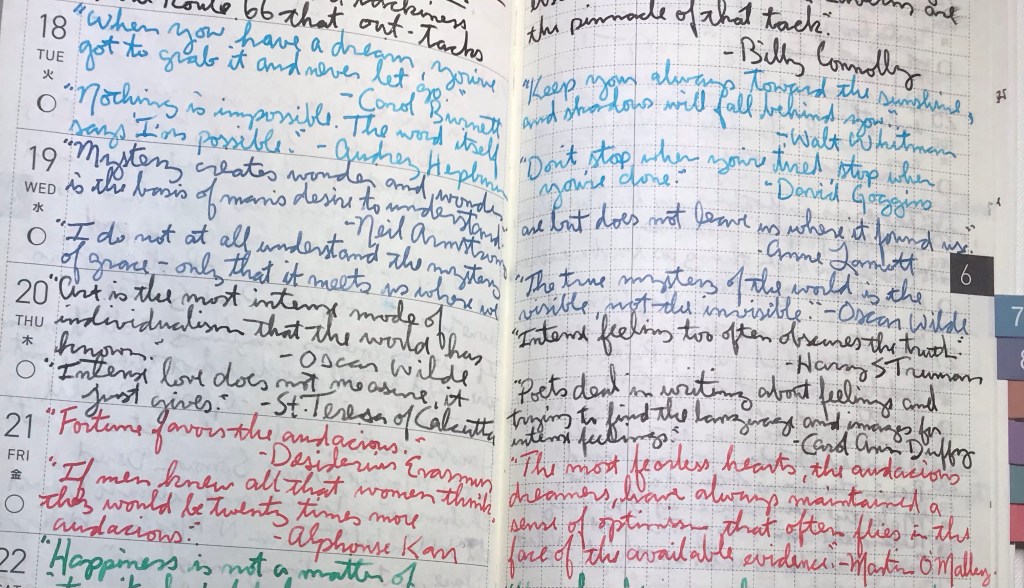 Route 66 that out-tacks
18 "When you have a dream, you've
TUE got to grab it and never let go."
火 -Carol Burnett
"Nothing is impossible. The word itself
says 'I'm possible.'" -Audrey Hepburn
19 "Mystery creates wonder and wonder
WED is the basis of man's desire to understand."
水 -Neil Armstrong
"I do not at all understand the mystery
of grace - only that it meets us where we
20 "Art is the most intense mode of
THU individualism that the world has
木 known." -Oscar Wilde
"Intense love does not measure, it
just gives." -St. Teresa of Calcutta
21 "Fortune favors the audacious."
FRI -Desiderius Erasmus
金 "If men knew all that women think,
they would be twenty times more
audacious." -Alphonse Karr
22 "Happiness is not a matter of
the pinnacle of that tack."
-Billy Connolly
"Keep your always toward the sunshine,
and shadows will fall behind you."
-Walt Whitman
"Don't stop when you're tired stop when
you're done." -David Goggins
are but does not leave us where it found us."
-Anne Lamott
"The true mystery of the world is the
visible, not the invisible." -Oscar Wilde
"Intense feeling too often obscures the truth."
-Harry S Truman
"Poets deal in writing about feelings and
trying to find the language and images for
intense feelings." -Carol Ann Duffy
"The most fearless hearts, the audacious
dreamers, have always maintained a
sense of optimism that often flies in the
face of the available evidence." -Martin O'Malley
6
7
8